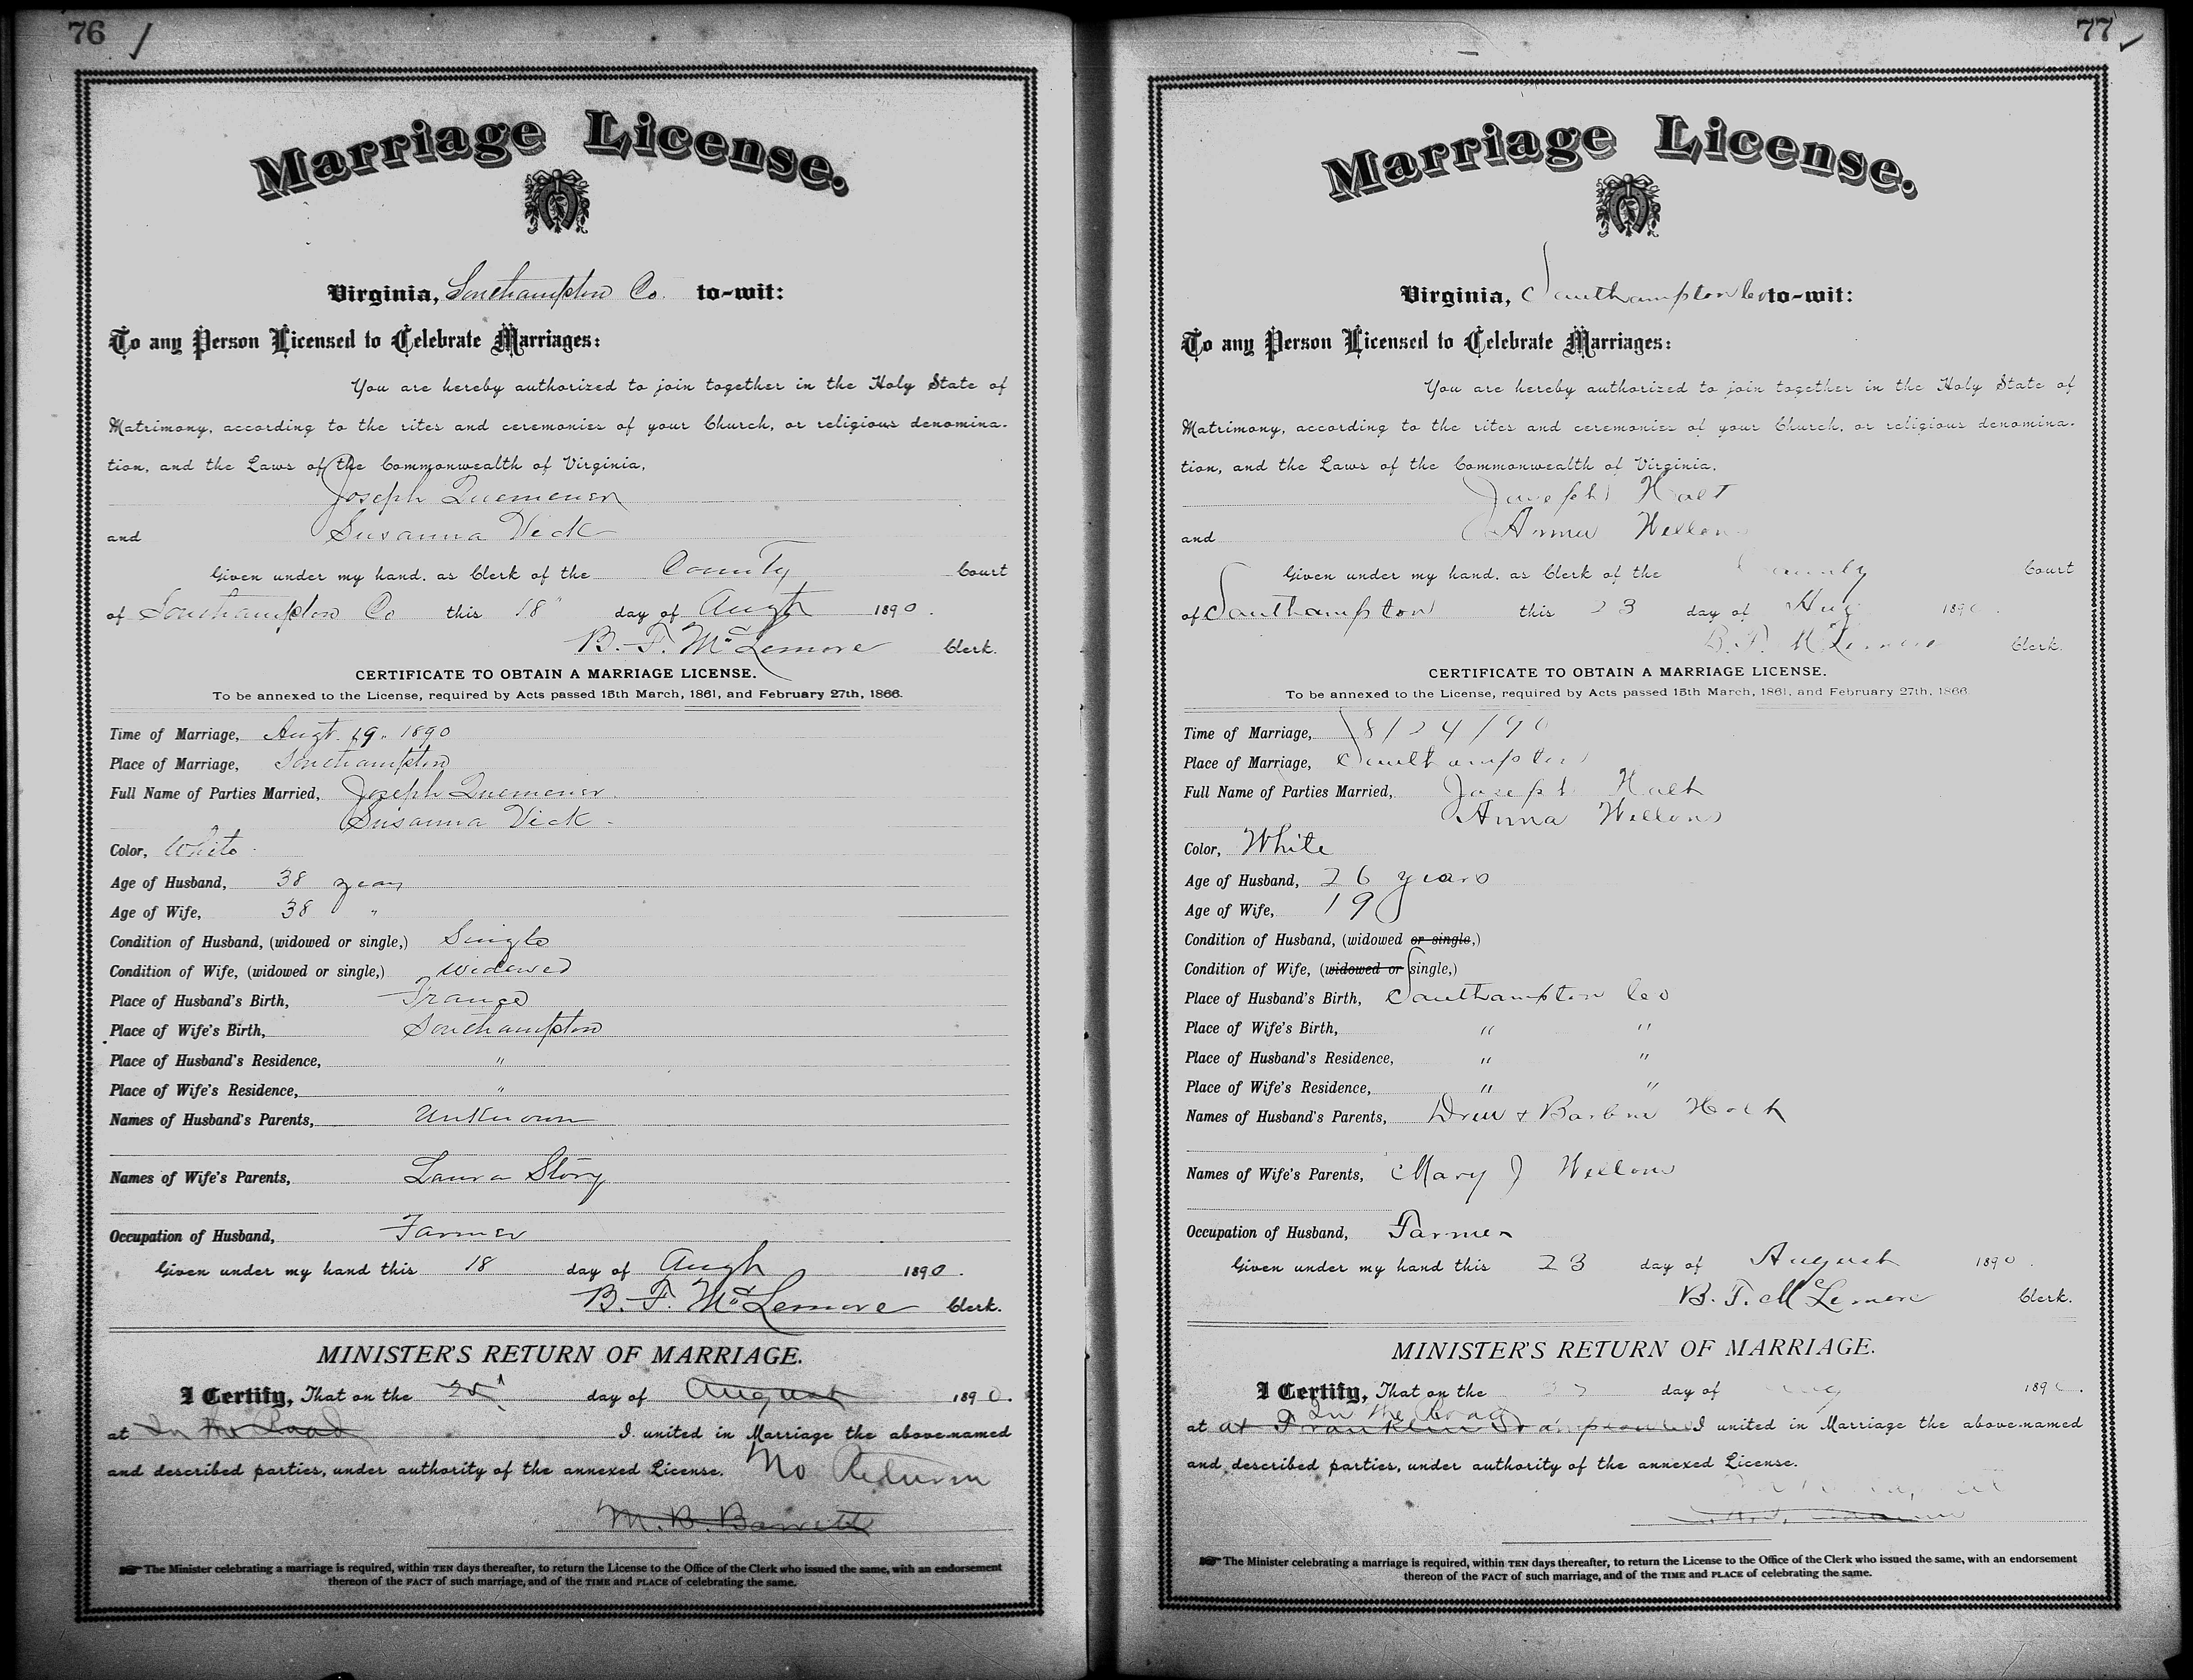 76
Marriage License.
Virginia, Southampton Co. to-wit:
To any Person Licensed to Celebrate Marriages:
You are hereby authorized to join together in the Holy State of
Matrimony, according to the rites and ceremonies of your Church, or religious denomina-
tion, and the Laws of the Commonwealth of Virginia,
Joseph Quemener
and Susanna Vick
Given under my hand, as Clerk of the County Court
of Southampton Co this 18" day of Augt 1890.
B. F. McLemore Clerk.
CERTIFICATE TO OBTAIN A MARRIAGE LICENSE.
To be annexed to the License, required by Acts passed 15th March, 1861, and February 27th, 1866.
Time of Marriage, Augt. 19. 1890
Place of Marriage, Southampton
Full Name of Parties Married, Joseph Quemener.
Susanna Vick.
Color, White
Age of Husband, 38 years
Age of Wife, 38 "
Condition of Husband, (widowed or single,) Single
Condition of Wife, (widowed or single,) Widowed
Place of Husband's Birth, France
Place of Wife's Birth, Southampton
Place of Husband's Residence, "
Place of Wife's Residence, "
Names of Husband's Parents, Unknown
Names of Wife's Parents, Laura Story
Occupation of Husband, Farmer
Given under my hand this 18 day of Augt 1890.
B. F. McLemore Clerk.
MINISTER'S RETURN OF MARRIAGE.
I Certify, That on the day of August 1890.
at In the Road I united in Marriage the above-named
and described parties, under authority of the annexed License. No Return
M. B. Barrett
The Minister celebrating a marriage is required, within TEN days thereafter, to return the License to the Office of the Clerk who issued the same, with an endorsement
thereon of the FACT of such marriage, and of the TIME and PLACE of celebrating the same.
77
Marriage License.
Virginia, Southampton Co to-wit:
To any Person Licensed to Celebrate Marriages:
You are hereby authorized to join together in the Holy State of
Matrimony, according to the rites and ceremonies of your Church, or religious denomina-
tion, and the Laws of the Commonwealth of Virginia,
Joseph Holt
and Anna Wellons
Given under my hand, as Clerk of the County Court
of Southampton this 23 day of Aug 1890.
B. F. McLemore Clerk.
CERTIFICATE TO OBTAIN A MARRIAGE LICENSE.
To be annexed to the License, required by Acts passed 15th March, 1861, and February 27th, 1866.
Time of Marriage, 8/24/90
Place of Marriage, Southampton
Full Name of Parties Married, Joseph Holt
Anna Wellons
Color, White
Age of Husband, 26 years
Age of Wife, 19
Condition of Husband, (widowed or single,)
Condition of Wife, (widowed or single,)
Place of Husband's Birth, Southampton Co
Place of Wife's Birth, " "
Place of Husband's Residence, " "
Place of Wife's Residence, " "
Names of Husband's Parents, Drew + Holt
Names of Wife's Parents, Mary J Wellons
Occupation of Husband, Farmer
Given under my hand this 23 day of August 1890.
B. F. McLemore Clerk.
MINISTER'S RETURN OF MARRIAGE.
I Certify, That on the day of Aug 1890.
In the Road
at at Franklin I united in Marriage the above-named
and described parties, under authority of the annexed License.
The Minister celebrating a marriage is required, within TEN days thereafter, to return the License to the Office of the Clerk who issued the same, with an endorsement
thereon of the FACT of such marriage, and of the TIME and PLACE of celebrating the same.